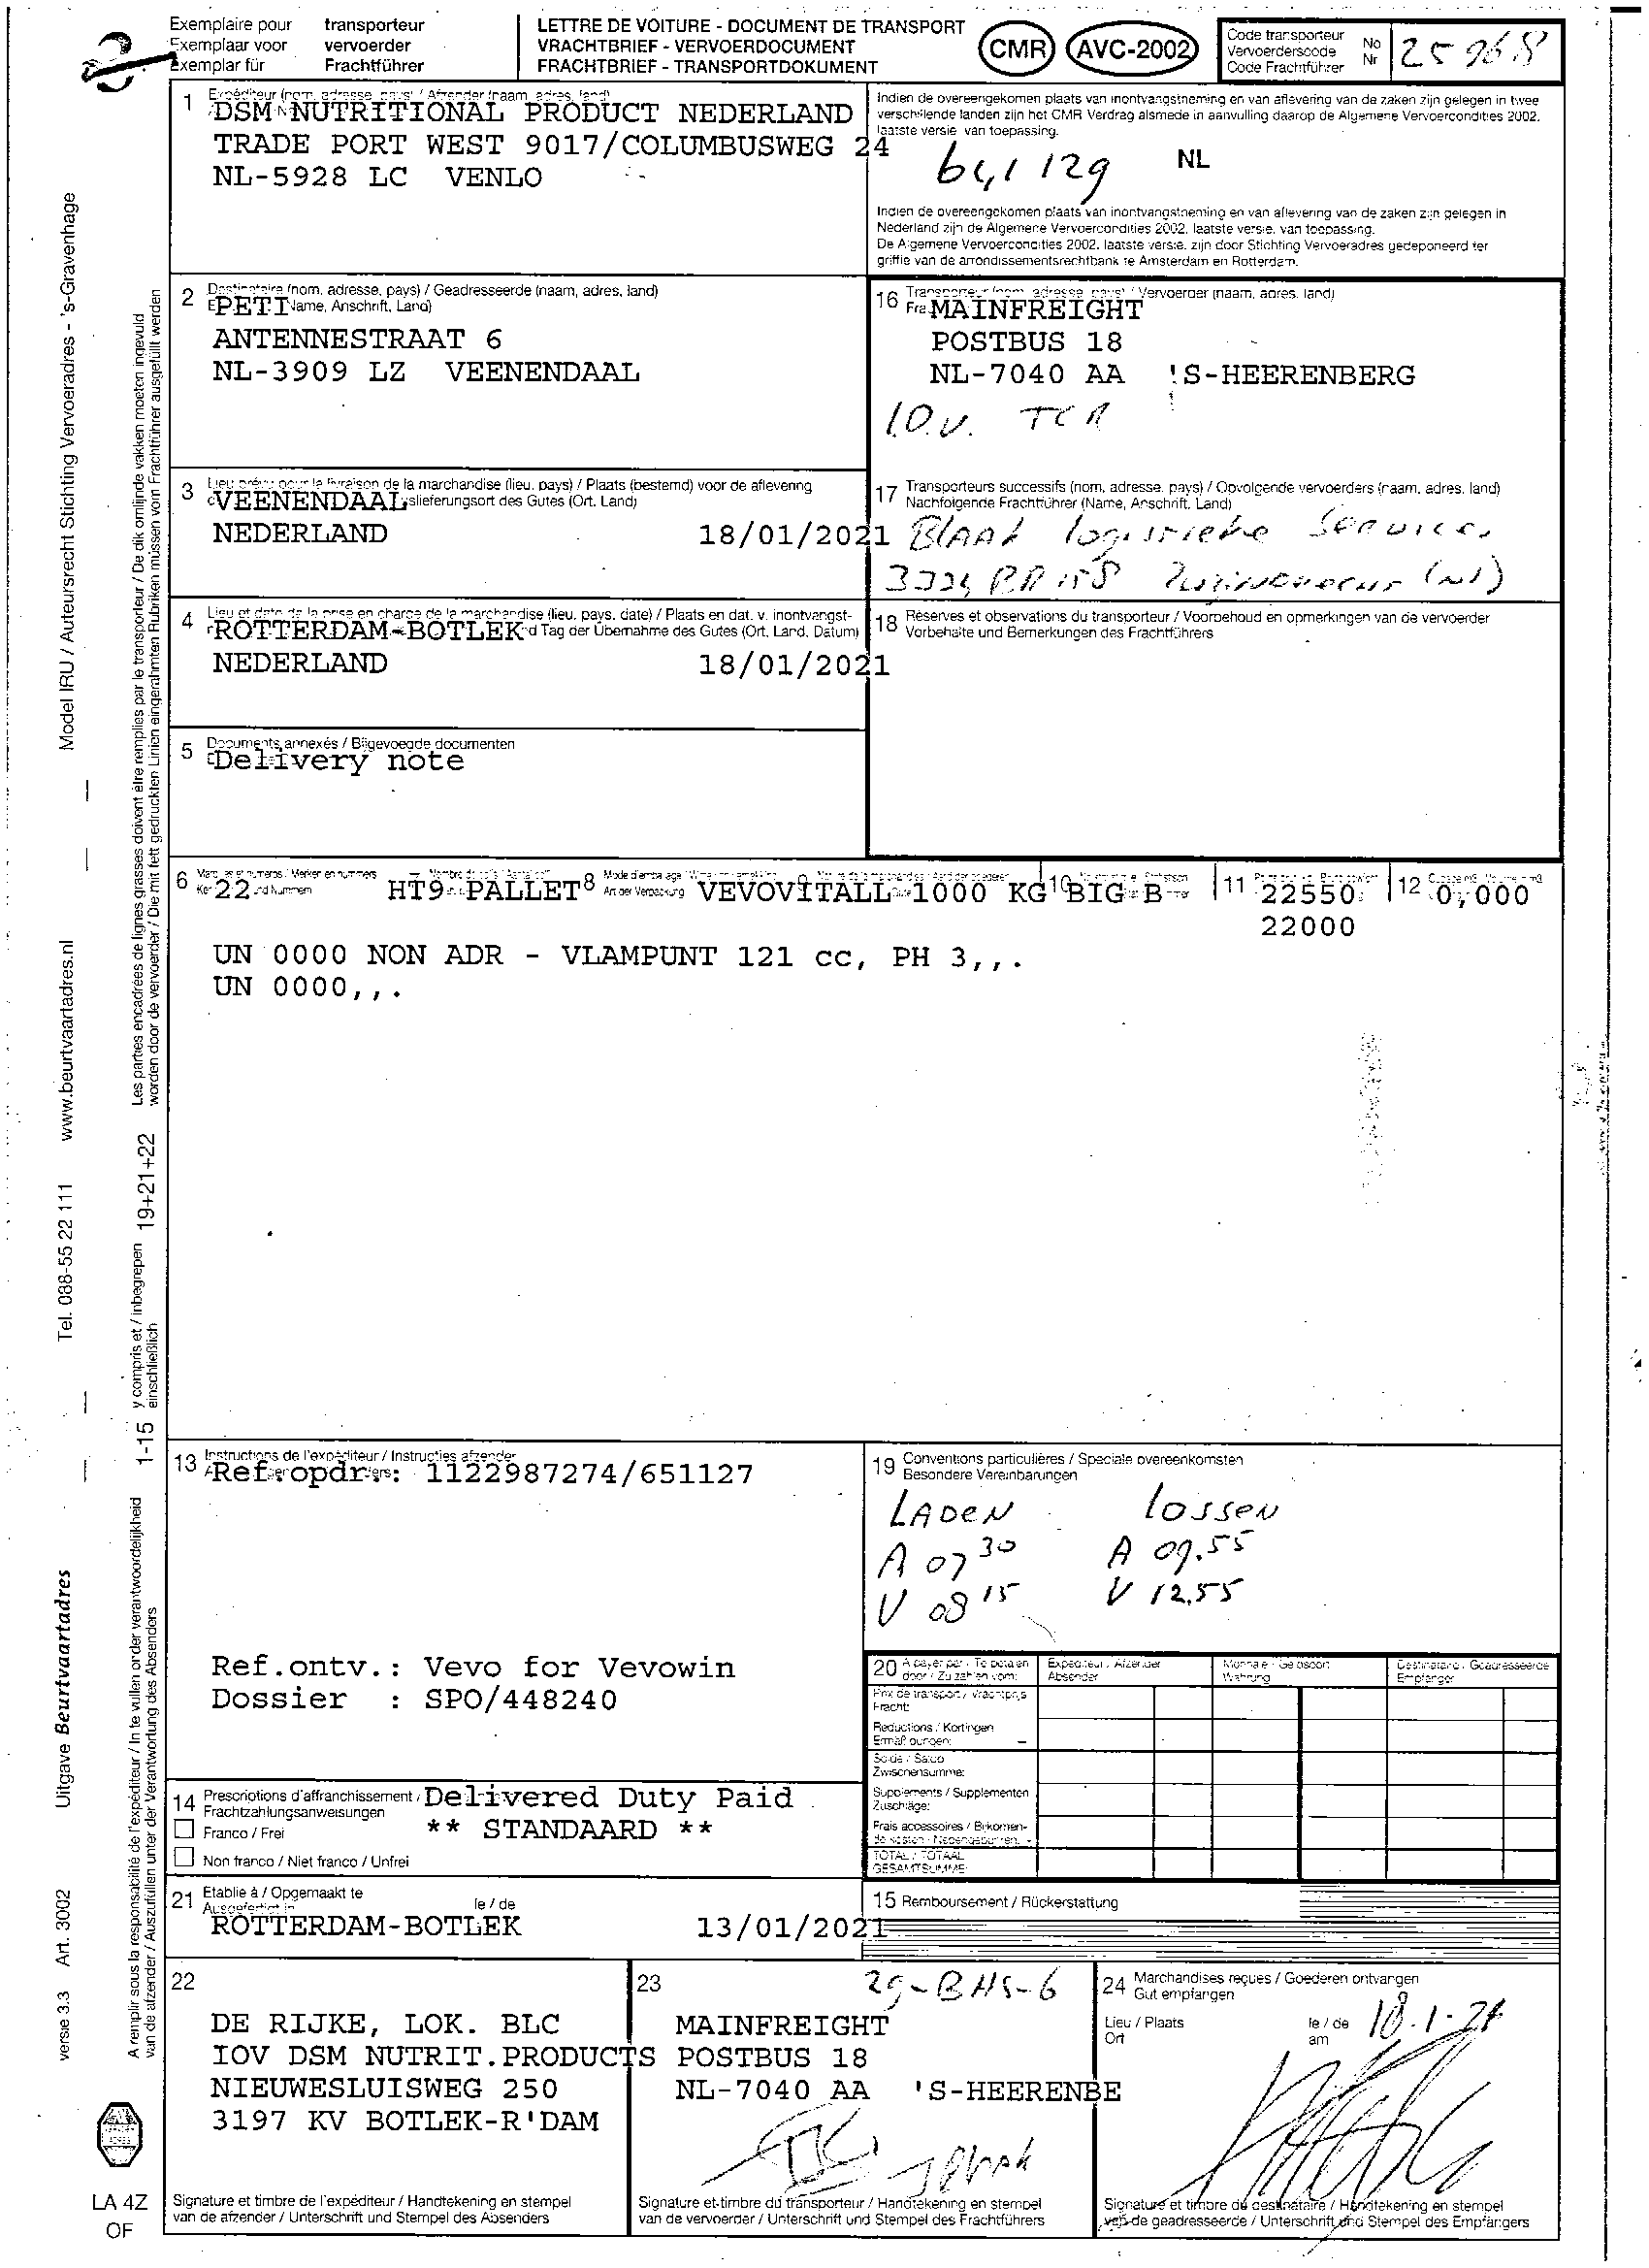 Exemplaire pour transporteur
Exemplaar voor vervoerder
Exemplar für Frachtführer
LETTRE DE VOITURE - DOCUMENT DE TRANSPORT
VRACHTBRIEF - VERVOERDOCUMENT
FRACHTBRIEF - TRANSPORTDOKUMENT
CMR
AVC-2002
Code transporteur
Vervoerderscode
Code Frachtführer
No
Nr
25968
1
DSM NUTRITIONAL PRODUCT NEDERLAND
TRADE PORT WEST 9017/COLUMBUSWEG 24
NL-5928 LC VENLO
Indien de overeengekomen plaats van inontvangstneming en van aflevering van de zaken zijn gelegen in twee
verschillende landen zijn het CMR Verdrag alsmede in aanvulling daarop de Algemene Vervoercondities 2002,
laatste versie van toepassing.
NL
Indien de overeengekomen plaats van inontvangstneming en van aflevering van de zaken zijn gelegen in
Nederland zijn de Algemene Vervoercondities 2002, laatste versie, van toepassing.
De Algemene Vervoercondities 2002, laatste versie, zijn door Stichting Vervoeradres gedeponeerd ter
griffie van de arrondissementsrechtbank te Amsterdam en Rotterdam.
2 Destinataire (nom, adresse, pays) / Geadresseerde (naam, adres, land)
PETI Name, Anschrift, Land)
ANTENNESTRAAT 6
NL-3909 LZ VEENENDAAL
16 Vervoerder (naam, adres, land)
MAINFREIGHT
POSTBUS 18
NL-7040 AA 'S-HEERENBERG
I.O.V. TCR
3 Lieu prévu pour la livraison de la marchandise (lieu, pays) / Plaats (bestemd) voor de aflevering
VEENENDAAL slieferungsort des Gutes (Ort, Land)
NEDERLAND 18/01/2021
17 Transporteurs successifs (nom, adresse, pays) / Opvolgende vervoerders (naam, adres, land)
Nachfolgende Frachtführer (Name, Anschrift, Land)
Blaak logistieke Services
4 Lieu et date de la prise en charge de la marchandise (lieu, pays, date) / Plaats en dat. v. inontvangst-
ROTTERDAM-BOTLEK d Tag der Übernahme des Gutes (Ort, Land, Datum)
NEDERLAND 18/01/2021
18 Réserves et observations du transporteur / Voorbehoud en opmerkingen van de vervoerder
Vorbehalte und Bemerkungen des Frachtführers
5 Documents annexés / Bijgevoegde documenten
Delivery note
6 22 HT9 PALLET 8 VEVOVITALL 1000 KG 10 BIG B 11 22550 12 0,000
22000
UN 0000 NON ADR - VLAMPUNT 121 cc, PH 3,,.
UN 0000,,.
13 Instructions de l'expéditeur / Instructies afzender
Ref.opdr.: 1122987274/651127
Ref.ontv.: Vevo for Vevowin
Dossier : SPO/448240
19 Conventions particulières / Speciale overeenkomsten
Besondere Vereinbarungen
LADEN LOSSEN
A 07 30 A 09.55
V 08 15 V 12.55
20 A payer par / Te betalen door / Zu zahlen vom:
Expéditeur / Afzender
Absender
Monnaie / Geldsoort
Währung
Destinataire / Geadresseerde
Empfänger
Prix de transport / Vrachtprijs
Fracht:
Réductions / Kortingen
Ermäßigungen: -
Solde / Saldo
Zwischensumme:
Suppléments / Supplementen
Zuschläge:
Frais accessoires / Bijkomen-
de kosten / Nebengebühren +
TOTAL / TOTAAL
GESAMTSUMME:
14 Prescriptions d'affranchissement / Delivered Duty Paid
Frachtzahlungsanweisungen
** STANDAARD **
Franco / Frei
Non franco / Niet franco / Unfrei
21 Etablie à / Opgemaakt te le / de
Ausgefertigt in
ROTTERDAM-BOTLEK 13/01/2021
15 Remboursement / Rückerstattung
22
DE RIJKE, LOK. BLC
IOV DSM NUTRIT.PRODUCTS
NIEUWESLUISWEG 250
3197 KV BOTLEK-R'DAM
Signature et timbre de l'expéditeur / Handtekening en stempel
van de afzender / Unterschrift und Stempel des Absenders
23
29-BHS-6
MAINFREIGHT
POSTBUS 18
NL-7040 AA 'S-HEERENBE
Signature et timbre du transporteur / Handtekening en stempel
van de vervoerder / Unterschrift und Stempel des Frachtführers
24 Marchandises reçues / Goederen ontvangen
Gut empfangen
Lieu / Plaats
Ort
le / de
am
18-1-21
Signature et timbre du destinataire / Handtekening en stempel
van de geadresseerde / Unterschrift und Stempel des Empfängers
Model IRU / Auteursrecht Stichting Vervoeradres - 's-Gravenhage
www.beurtvaartadres.nl
Tel. 088-55 22 111
Uitgave Beurtvaartadres
Art. 3002
versie 3.3
Les parties encadrées de lignes grasses doivent être remplies par le transporteur / De dik omlijnde vakken moeten ingevuld
worden door de vervoerder / Die mit fett gedruckten Linien eingerahmten Rubriken müssen vom Frachtführer ausgefüllt werden
19+21+22
y compris et / inbegrepen
einschließlich
1-15
A remplir sous la responsabilité de l'expéditeur / In te vullen onder verantwoordelijkheid
van de afzender / Auszufüllen unter der Verantwortung des Absenders
LA 4Z
OF